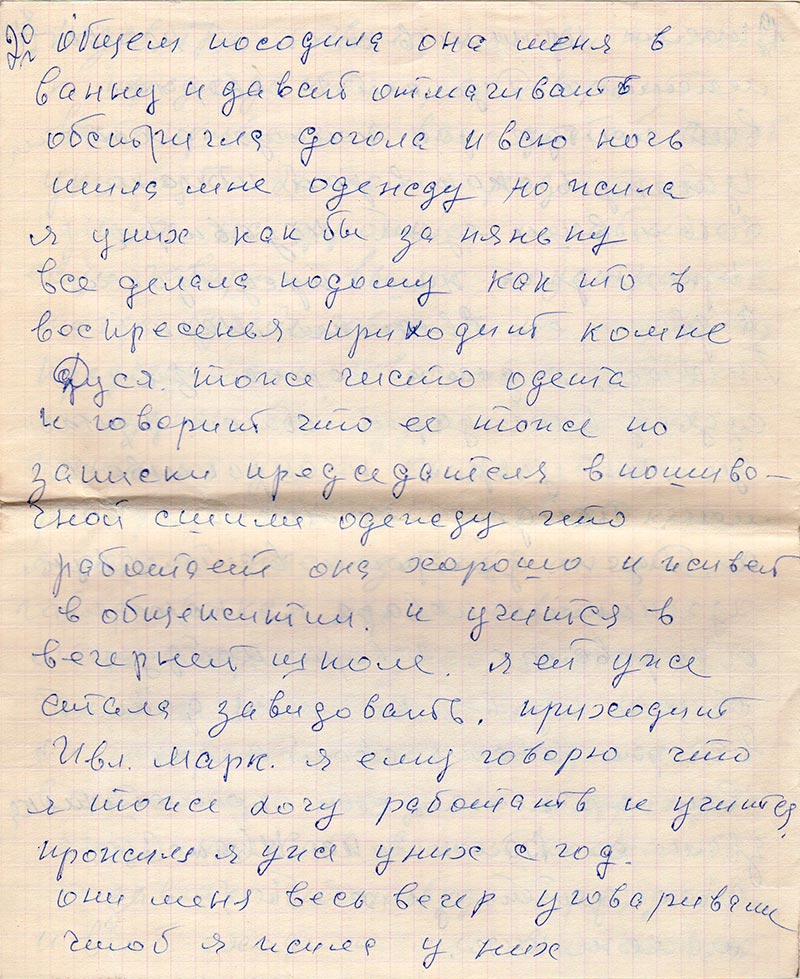 20 Общем посодила она меня в
ванну и давай отмачивать
обстригла догола и всю ночь
шила мне одежду но жила
я уних как бы за няньку
все делала подому как то в
воскресенья приходит комне
Дуся. тоже чисто одета
и говорит что ее тоже по
записки председателя впошиво-
чной сшили одежду что
работает она хорошо и живет
в общежитии. и учится в
вечерней школе. я ей уже
стала завидовать. приходит
Ивл. Марк. я ему говорю что
я тоже хочу работать и учится,
прожила я уже уних с год.
они меня весь вечер уговаривали
чтоб я жила у них